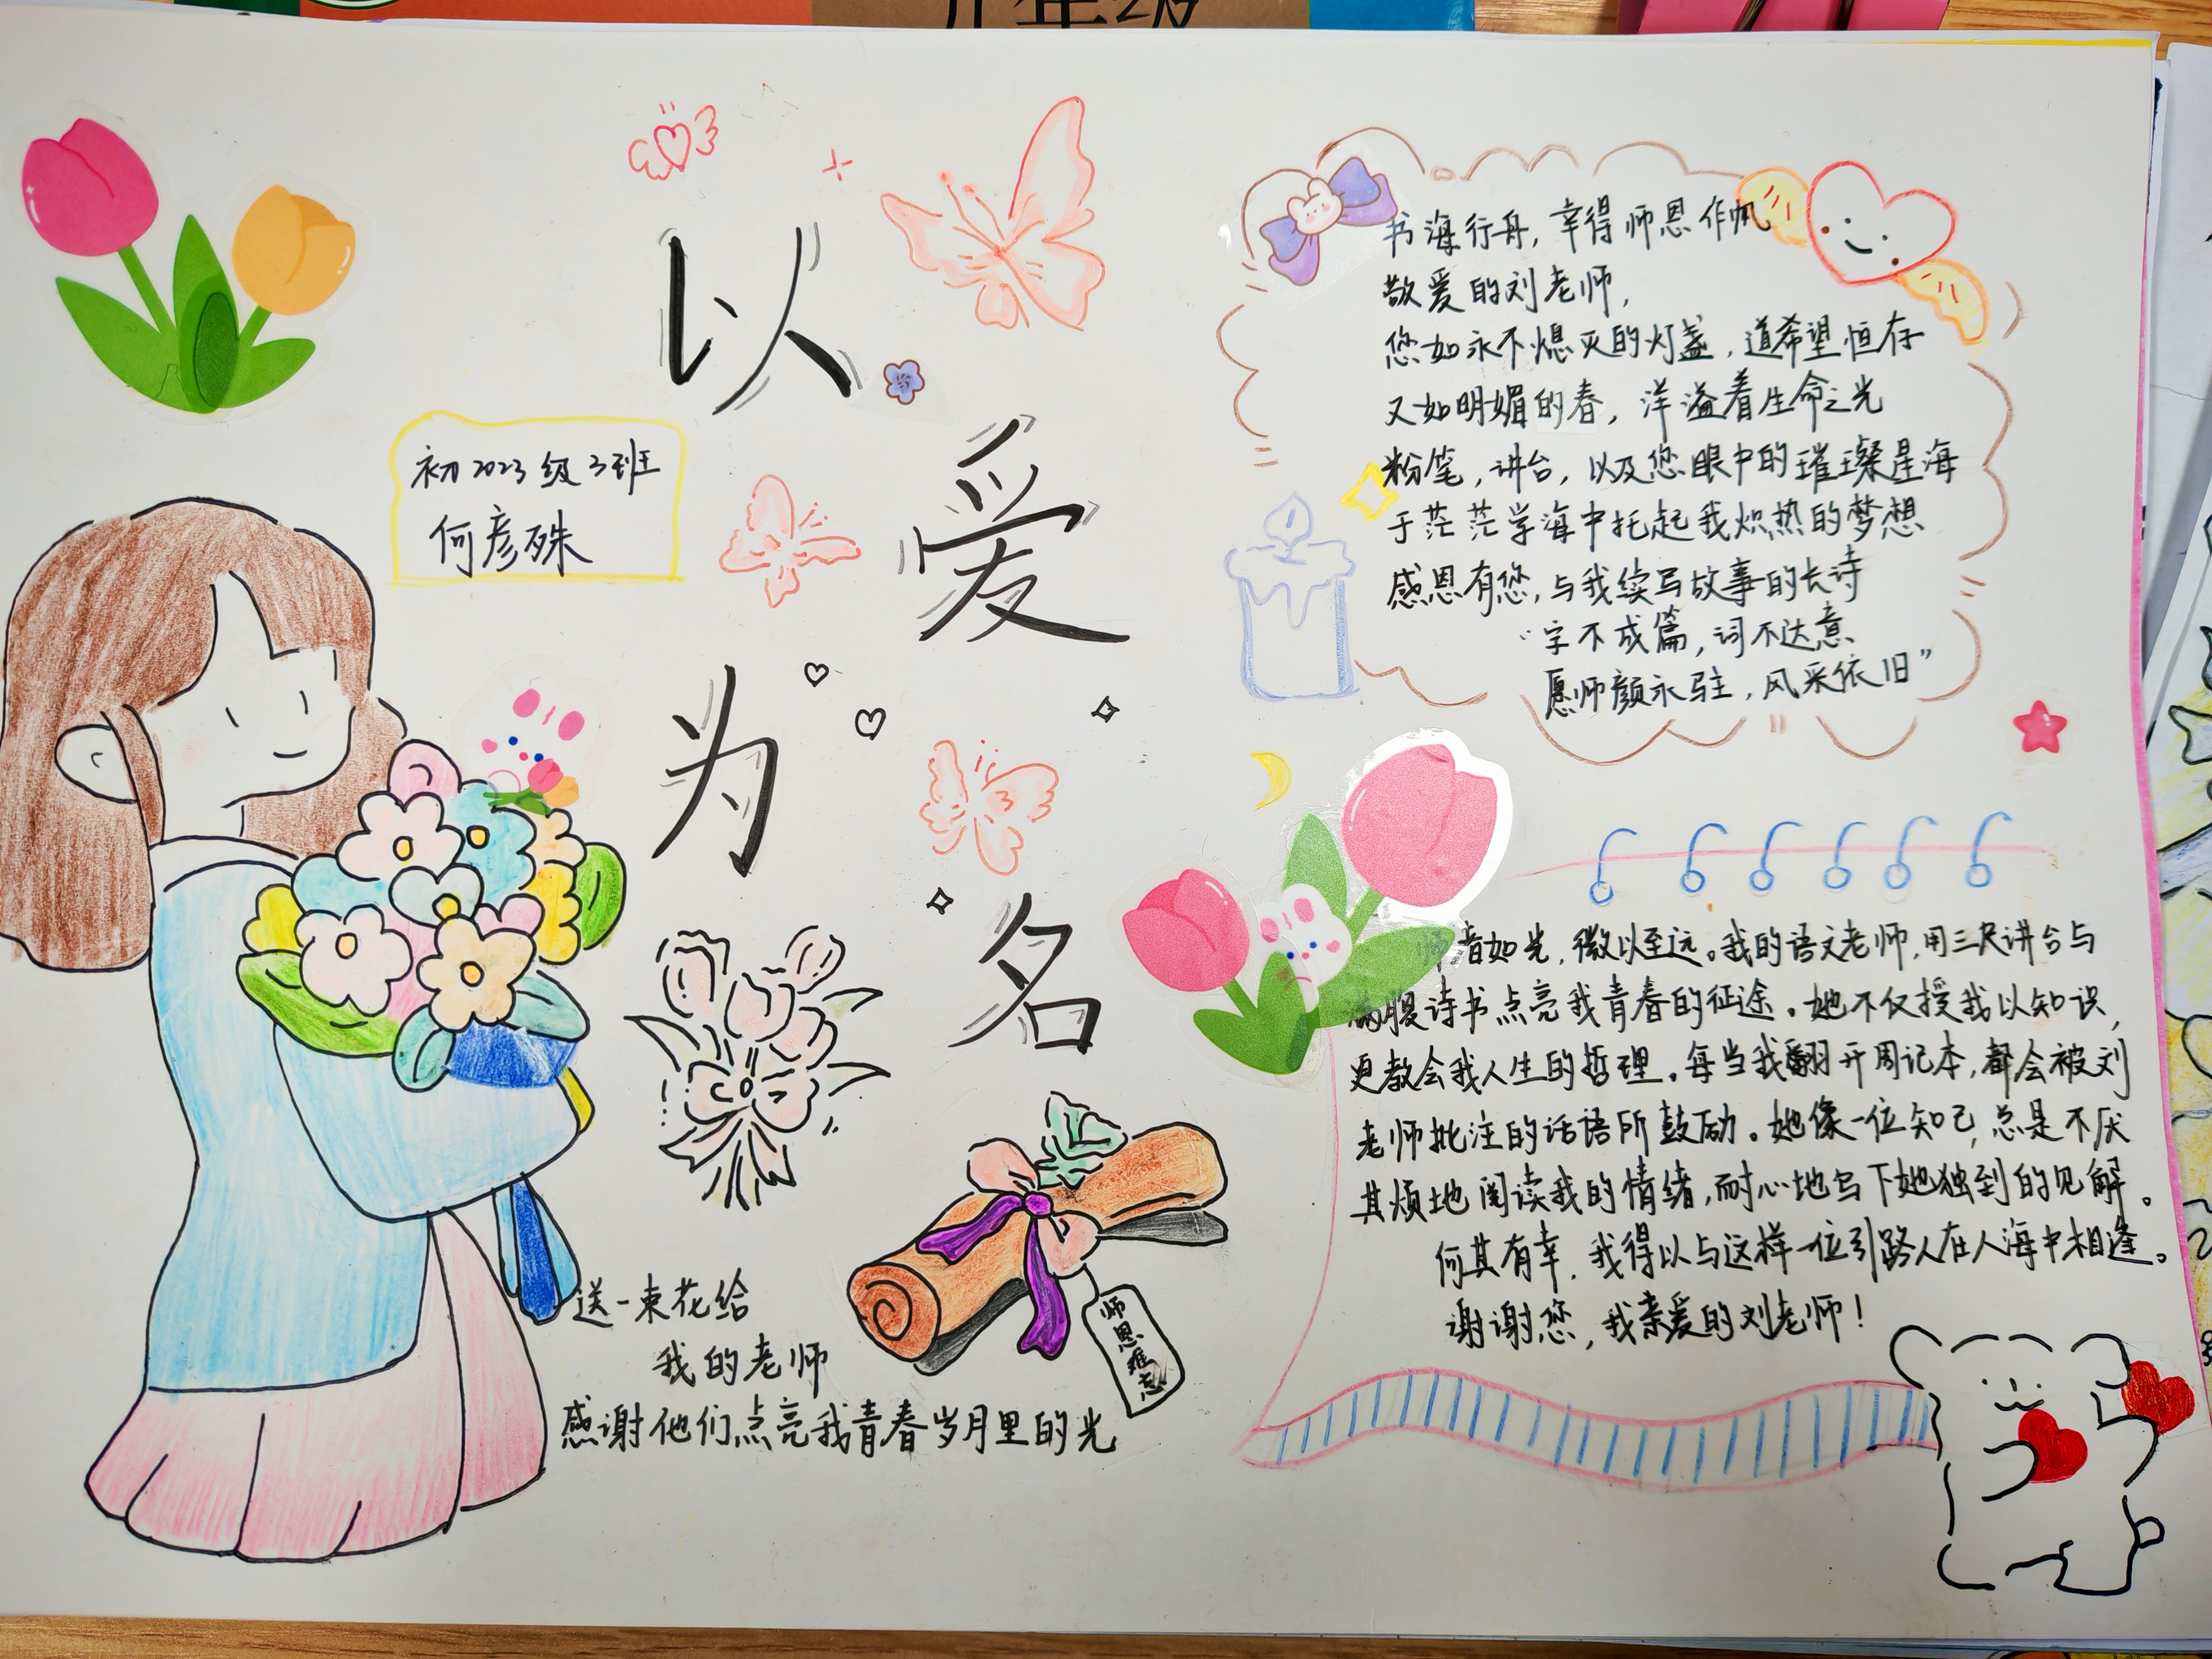 年级
以
爱
为
名
初2023级3班
何彦殊
书海行舟，幸得师恩作帆
敬爱的刘老师，
您如永不熄灭的灯盏，道希望恒存
又如明媚的春，洋溢着生命之光
粉笔，讲台，以及您眼中的璀璨星海
于茫茫学海中托起我炽热的梦想
感恩有您，与我续写故事的长诗
“字不成篇，词不达意
愿师颜永驻，风采依旧”
师者如光，微以至远。我的语文老师，用三尺讲台与
满腹诗书点亮我青春的征途。她不仅授我以知识，
更教会我人生的哲理。每当我翻开周记本，都会被刘
老师批注的话语所鼓励。她像一位知己，总是不厌
其烦地阅读我的情绪，耐心地写下她独到的见解。
何其有幸，我得以与这样一位引路人在人海中相逢。
谢谢您，我亲爱的刘老师！
师恩难忘
送一束花给
我的老师
感谢他们点亮我青春岁月里的光